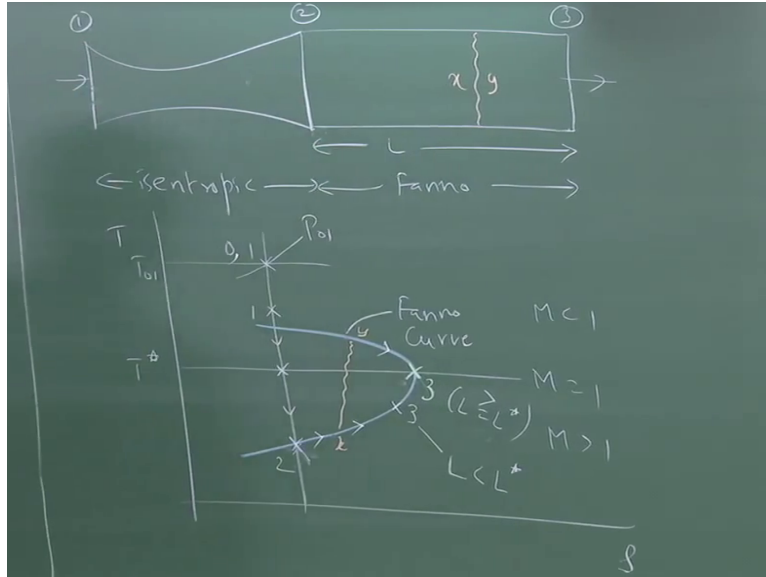 ① ② ③
x y
L
isentropic Fanno
T
P01
T01 0,1
1 Fanno M < 1
Curve
y
T* M = 1
3 (L ≥ L*)
3 M > 1
x
2 L < L*
s